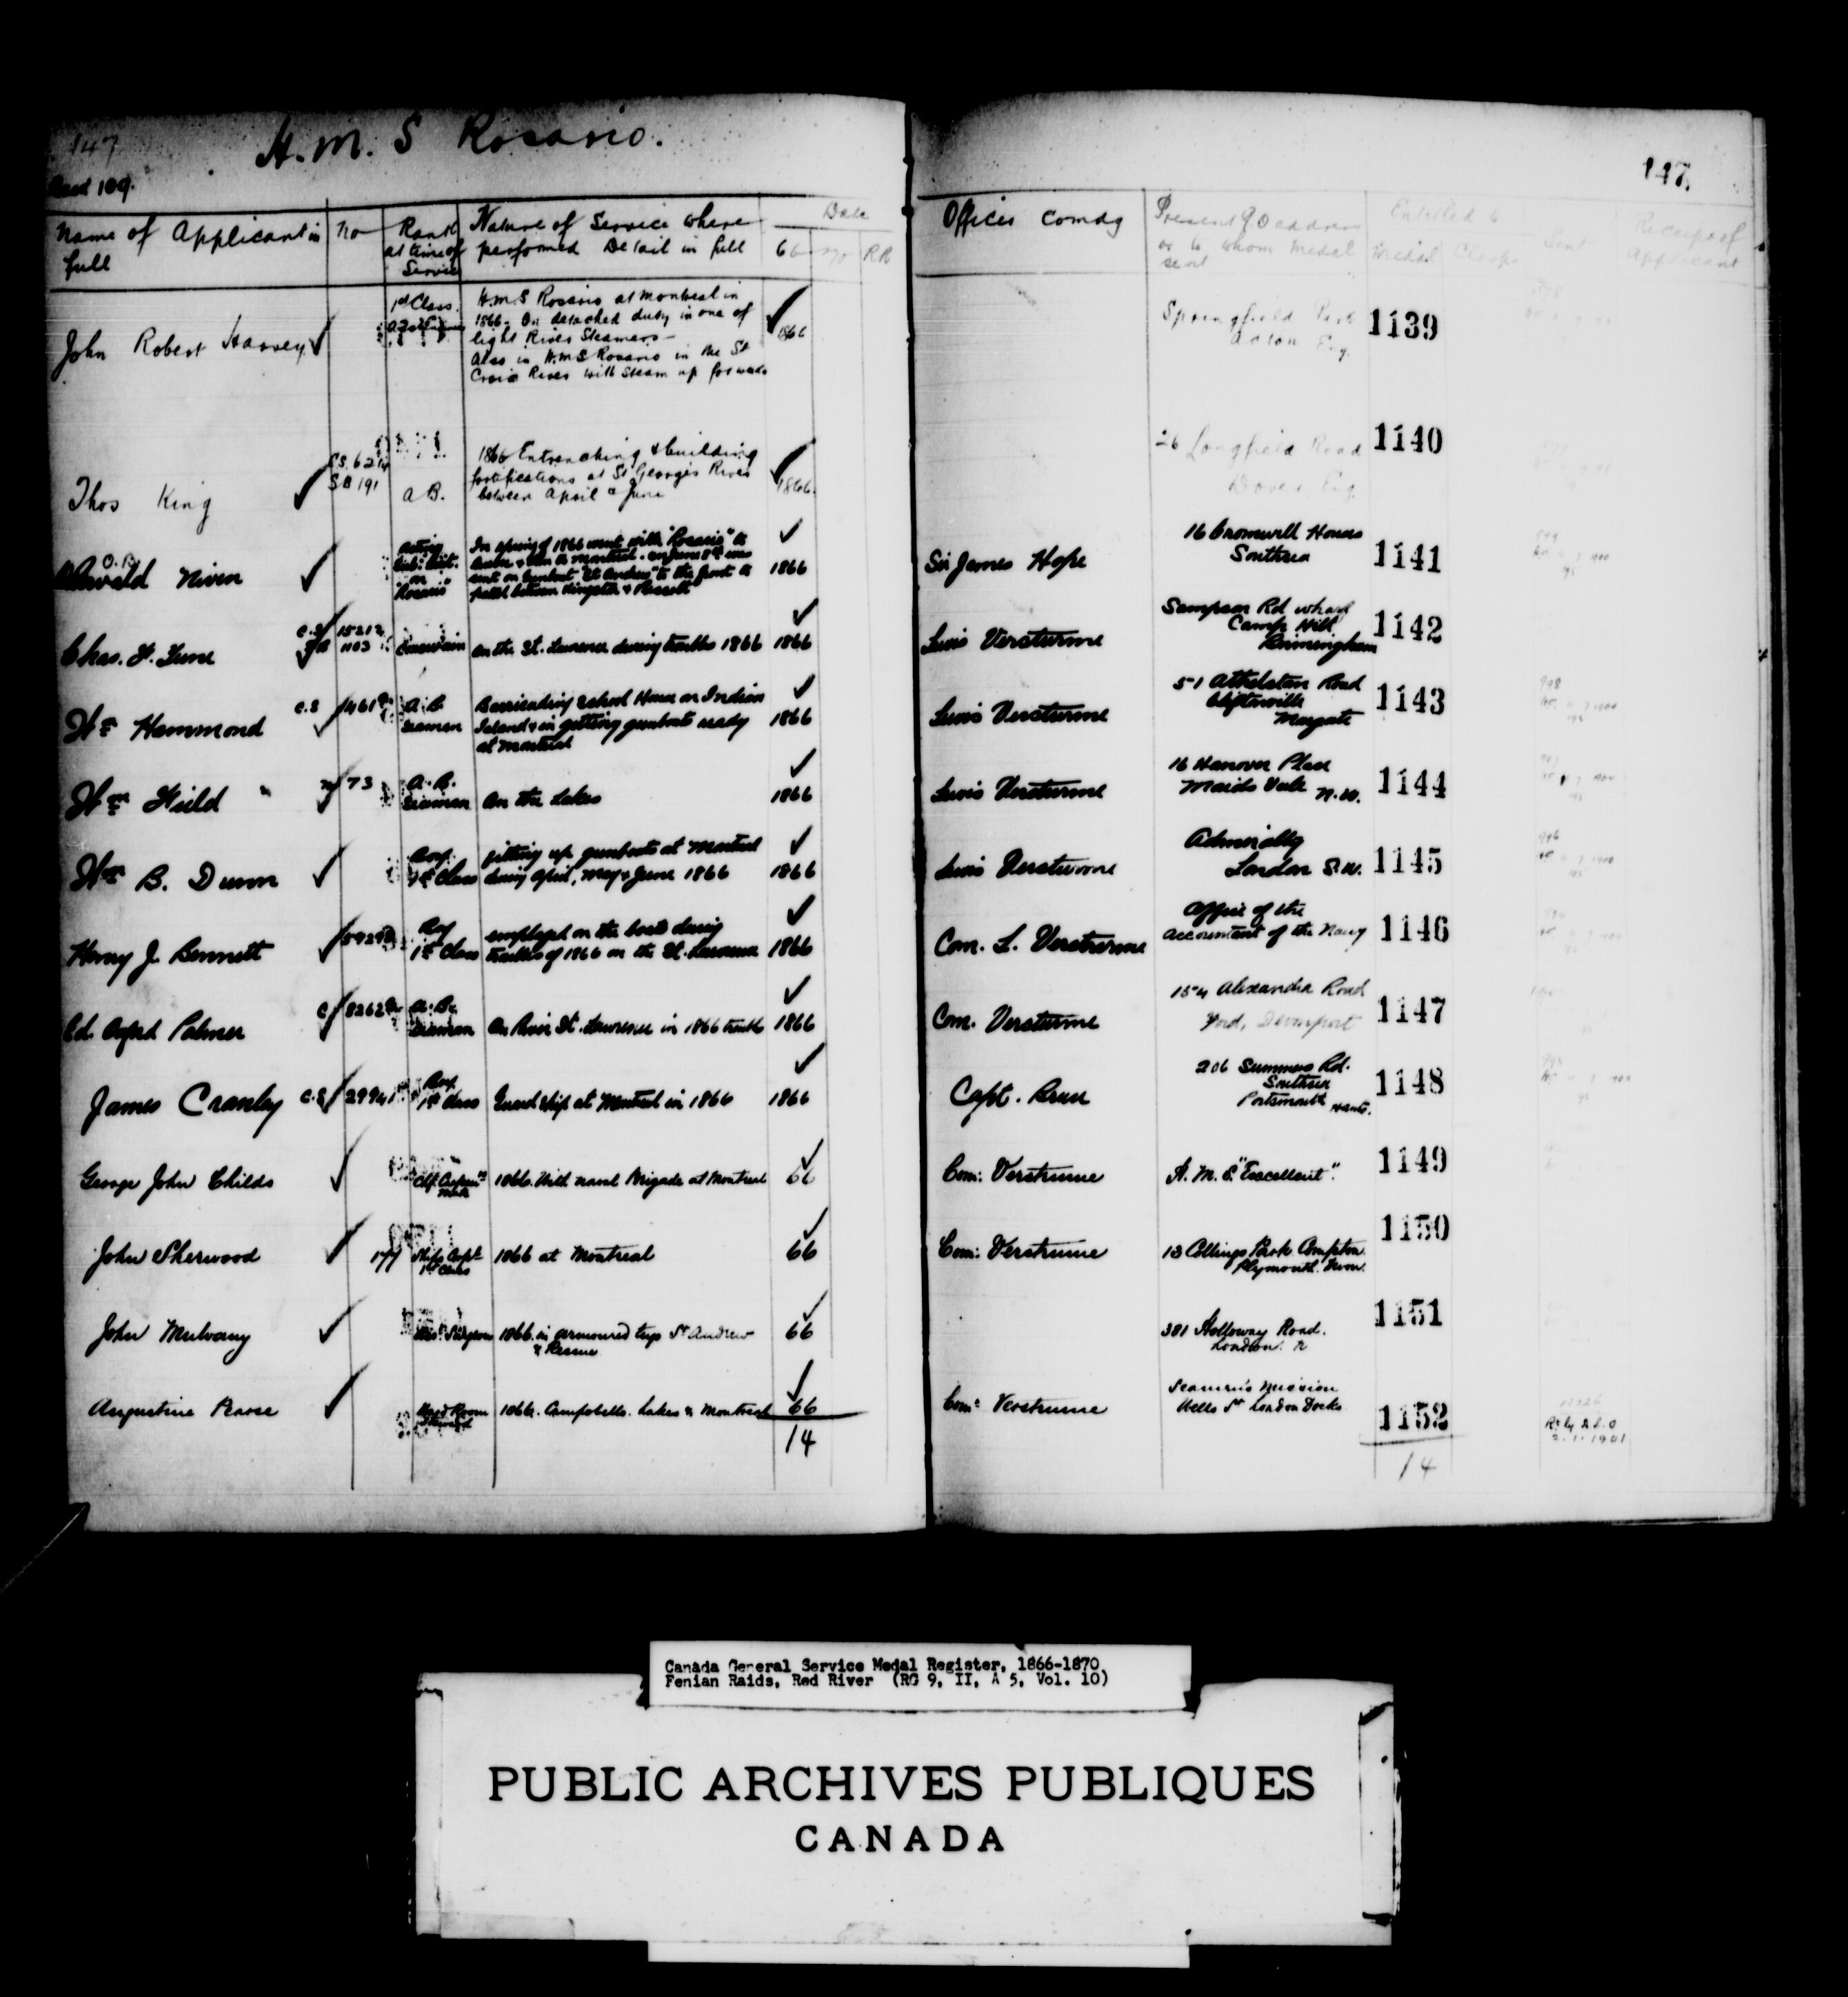 147
H.M.S Rosario.
109.
Name of Applicant in full
No
Rank at time of Service
Nature of Service where performed Detail in full
Date
66 70 RR
John Robert Harvey
1st Class
H.M.S Rosario at Montreal in
1866. On detached duty in one of
light River Steamers -
Also in H.M.S Rosario in the St
Croix River with Steam up forwards
1866
Thos King
C.S. 62
S.B 191
A B.
1866 Entrenching & building
fortifications at St Georges River
between April & June
1866.
O. B.
Niven
Acting
Sub:
on
Rosario
In spring of 1866 went with "Rosario" to
Montreal. on June 8th was
sent on Gunboat "St Andrew" to the front to
patrol between Kingston & Prescott
1866
Chas. F.
C.S 15212
1103
on the St. Lawrence during troubles 1866
1866
Wm Hammond
C.S 1461
A. B.
Seaman
Barricading School House on Indian
Island & in getting gunboats ready
at Montreal
1866
Wm Field
73
A. B.
Seaman
On the Lakes
1866
Wm B. Dunn
Boy
1st Class
fitting up gunboats at Montreal
during April, May & June 1866
1866
Henry J. Bennett
Boy
1st Class
employed on the boats during
troubles of 1866 on the St. Lawrence
1866
Ed. Palmer
8262
A. B.
Seaman
On River St. Lawrence in 1866 trouble
1866
James Cranley
C.S 29941
Boy
1st Class
Guard ship at Montreal in 1866
1866
George John Childs
Mate
1866. With naval Brigade at Montreal
66
John Sherwood
177
Ships Corpl
1st Class
1866 at Montreal
66
John Mulvany
Surgeon
1866. in armoured tugs St Andrew
& Rescue
66
Augustine Pearse
Ward Room
Steward
1866. Campobello. Lakes & Montreal
66
14
147
Officer Comdg
Present P.O address
or to whom medal
sent
Entitled to
Medal
Clasps
Sent
Receipt of
Applicant
Springfield Park
Acton Eng.
1139
26 Longfield Road
Dover Eng
1140
Sir James Hope
16 Cromwell House
Southsea
1141
Lewis Versturme
Sampson Rd wharf
Camp Hill
Birmingham
1142
Lewis Versturme
51 Athelstan Road
Cliftonville
Margate
1143
Lewis Versturme
16 Hanover Place
Maida Vale N.W.
1144
Lewis Versturme
Admiralty
London S.W.
1145
Com. L. Versturme
Office of the
accountant of the Navy
1146
Com. Versturme
154 Alexandra Road
Ford, Devonport
1147
Capt.
206 Summers Rd.
Southsea
Portsmouth Hants.
1148
Com: Versturme
H. M. S. "Excellent".
1149
Com: Versturme
13 Collings Park Compton
Plymouth. Devon.
1150
381 Holloway Road.
London. N
1151
Com: Versturme
Seamen's Mission
Wells St London Docks
1152
2.1.1901
14
Canada General Service Medal Register, 1866-1870
Fenian Raids, Red River (RG 9, II, A 5, Vol. 10)
PUBLIC ARCHIVES PUBLIQUES
CANADA